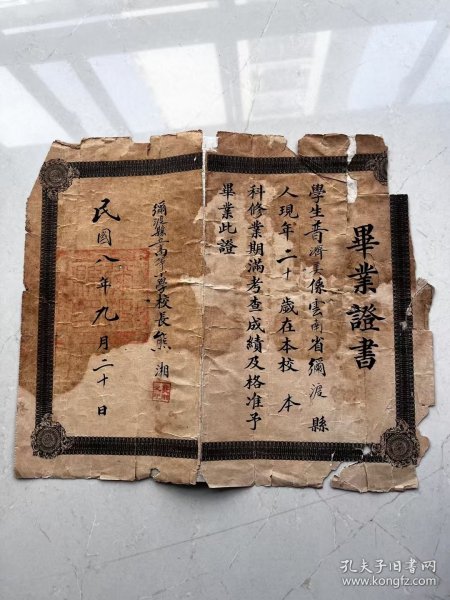 畢業證書
學生普濟美係雲南省彌渡縣
人現年二十歲在本校本
科修業期滿考查成績及格准予
畢業此證
彌渡縣立高等小學校長熊湘
民國八年九月二十日
孔夫子旧书网
www.kongfz.com